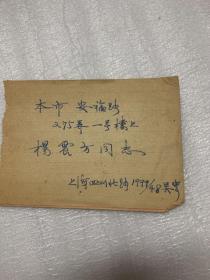 本市 安福路
275弄一号楼上
杨震方同志
上海四川北路1999